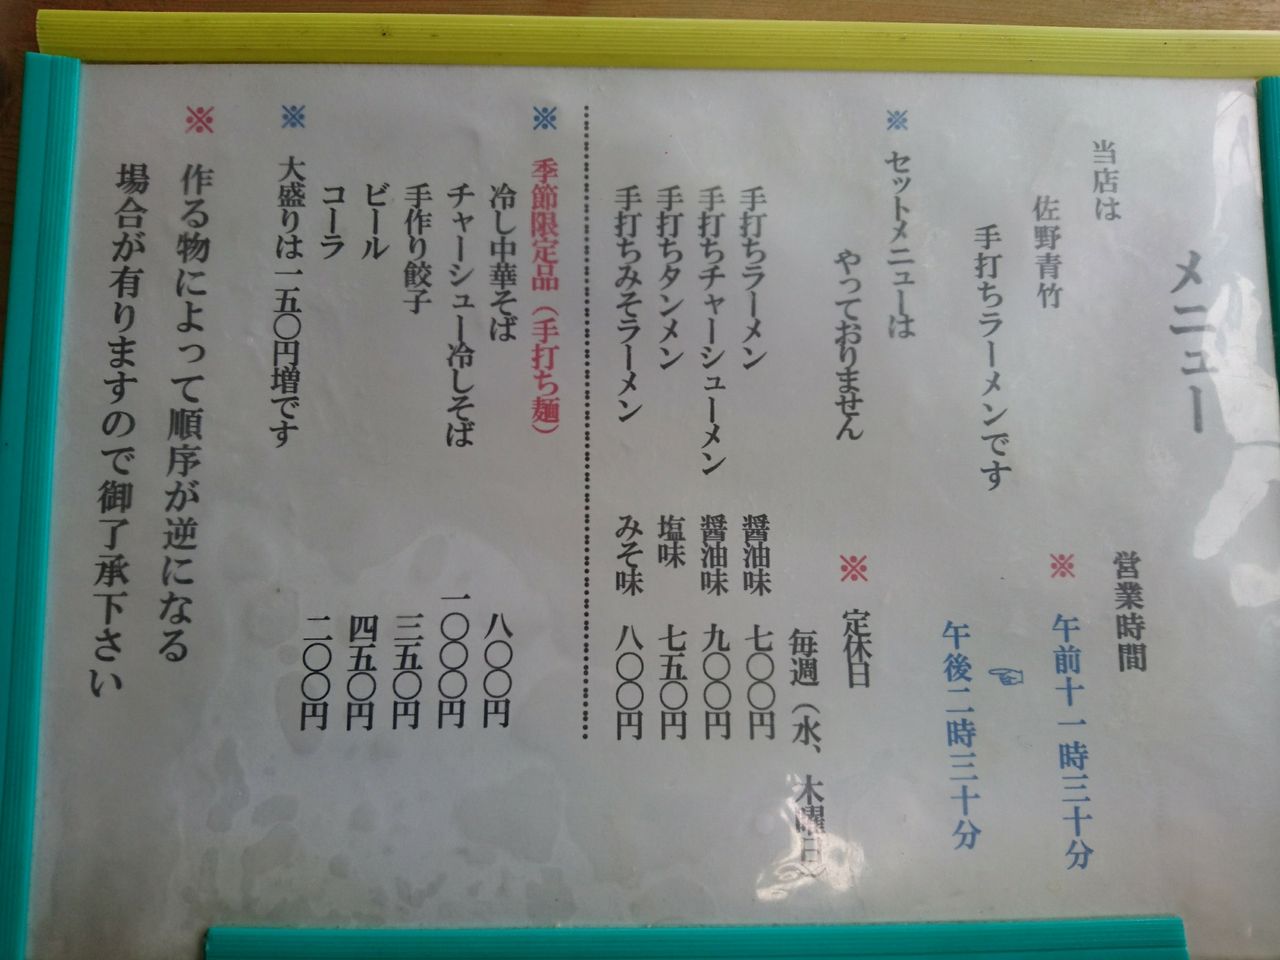 メニュー
当店は
佐野青竹
手打ちラーメンです
営業時間
※ 午前十一時三十分
☜
午後二時三十分
※ セットメニューは
やっておりません
※ 定休日
毎週(水、木曜日)
手打ちラーメン 醤油味 七〇〇円
手打ちチャーシューメン 醤油味 九〇〇円
手打ちタンメン 塩味 七五〇円
手打ちみそラーメン みそ味 八〇〇円
※ 季節限定品(手打ち麺)
冷し中華そば 八〇〇円
チャーシュー冷しそば 一〇〇〇円
手作り餃子 三五〇円
ビール 四五〇円
コーラ 二〇〇円
※ 大盛りは一五〇円増です
※ 作る物によって順序が逆になる
場合が有りますので御了承下さい